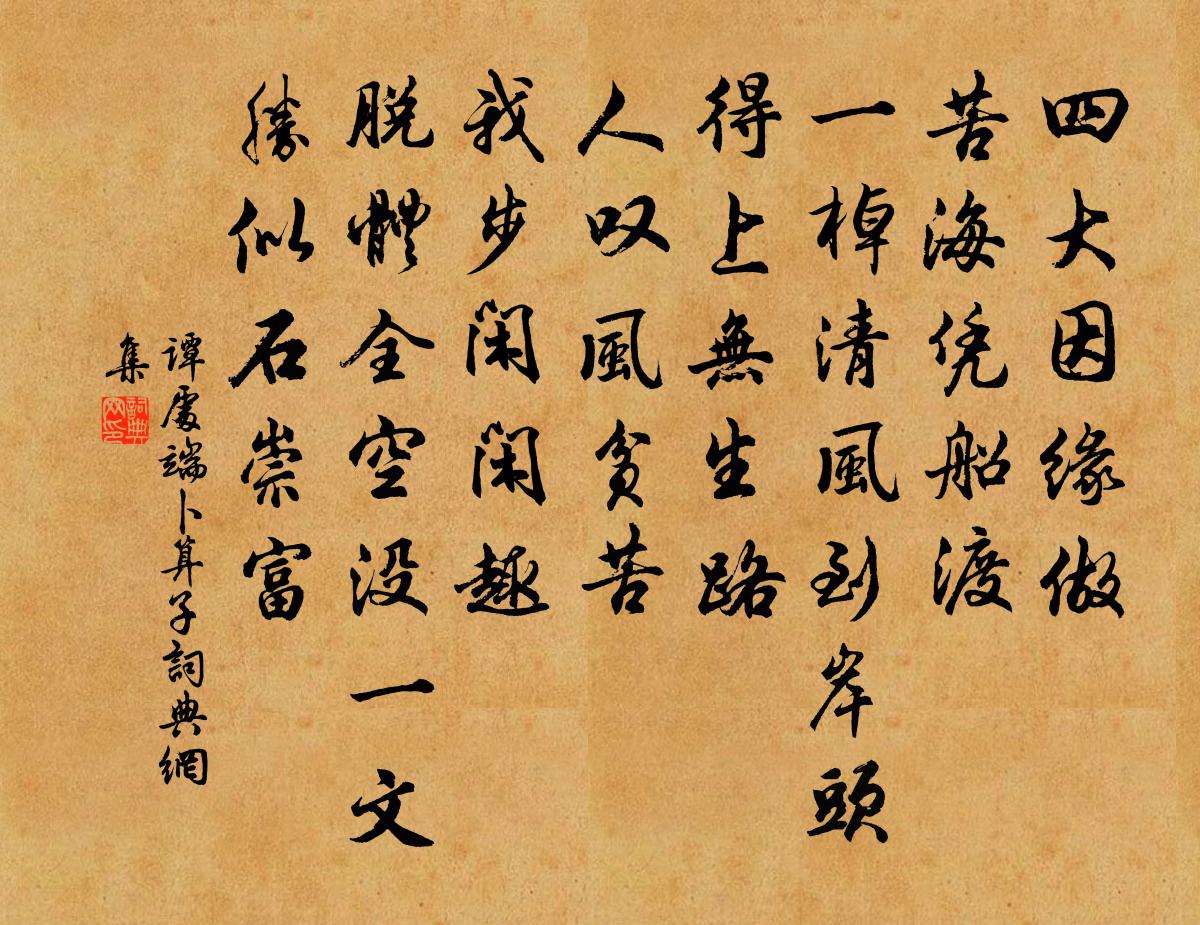 四大因缘做
苦海凭船渡
一棹清風到岸頭
得上無生路
人叹風贫苦
我步闲闲趣
脱體全空没一文
勝似石崇富
谭處端卜算子詞典網
集
詞典
网印